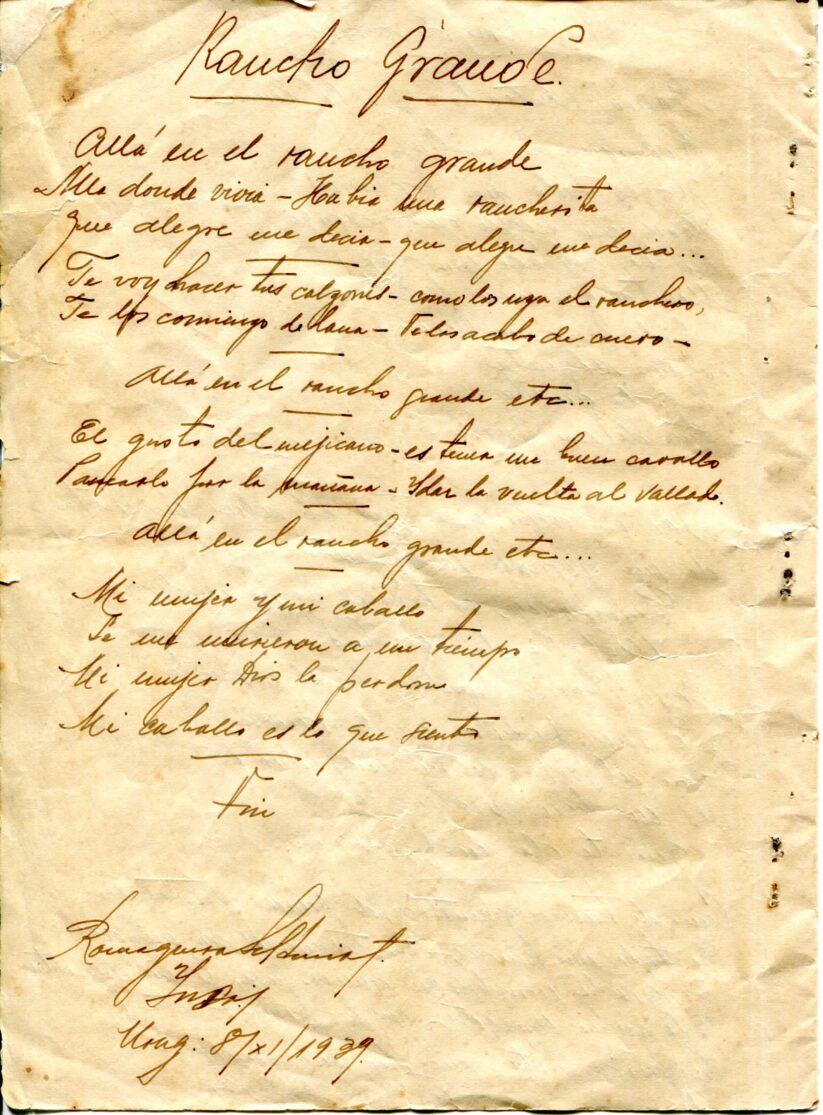 Rancho Grande.
Allá en el rancho grande
Alla donde vivia - Habia una rancherita
que alegre me decia - que alegre me decia...
Te voy hacer tus calzones - como los usa el ranchero,
Te los comingo de lana - Te los acabo de cuero -
Allá en el rancho grande etc...
El gusto del mejicano - es tener un buen cavallo
Pasearlo por la mañana - Y dar la vuelta al vallado.
Allá en el rancho grande etc...
Mi mujer y mi caballo
Se me murieron a un tiempo
Mi mujer Dios la perdone
Mi caballo es lo que siento
Fin
Romaguera
Urug: 8/XI/1939.